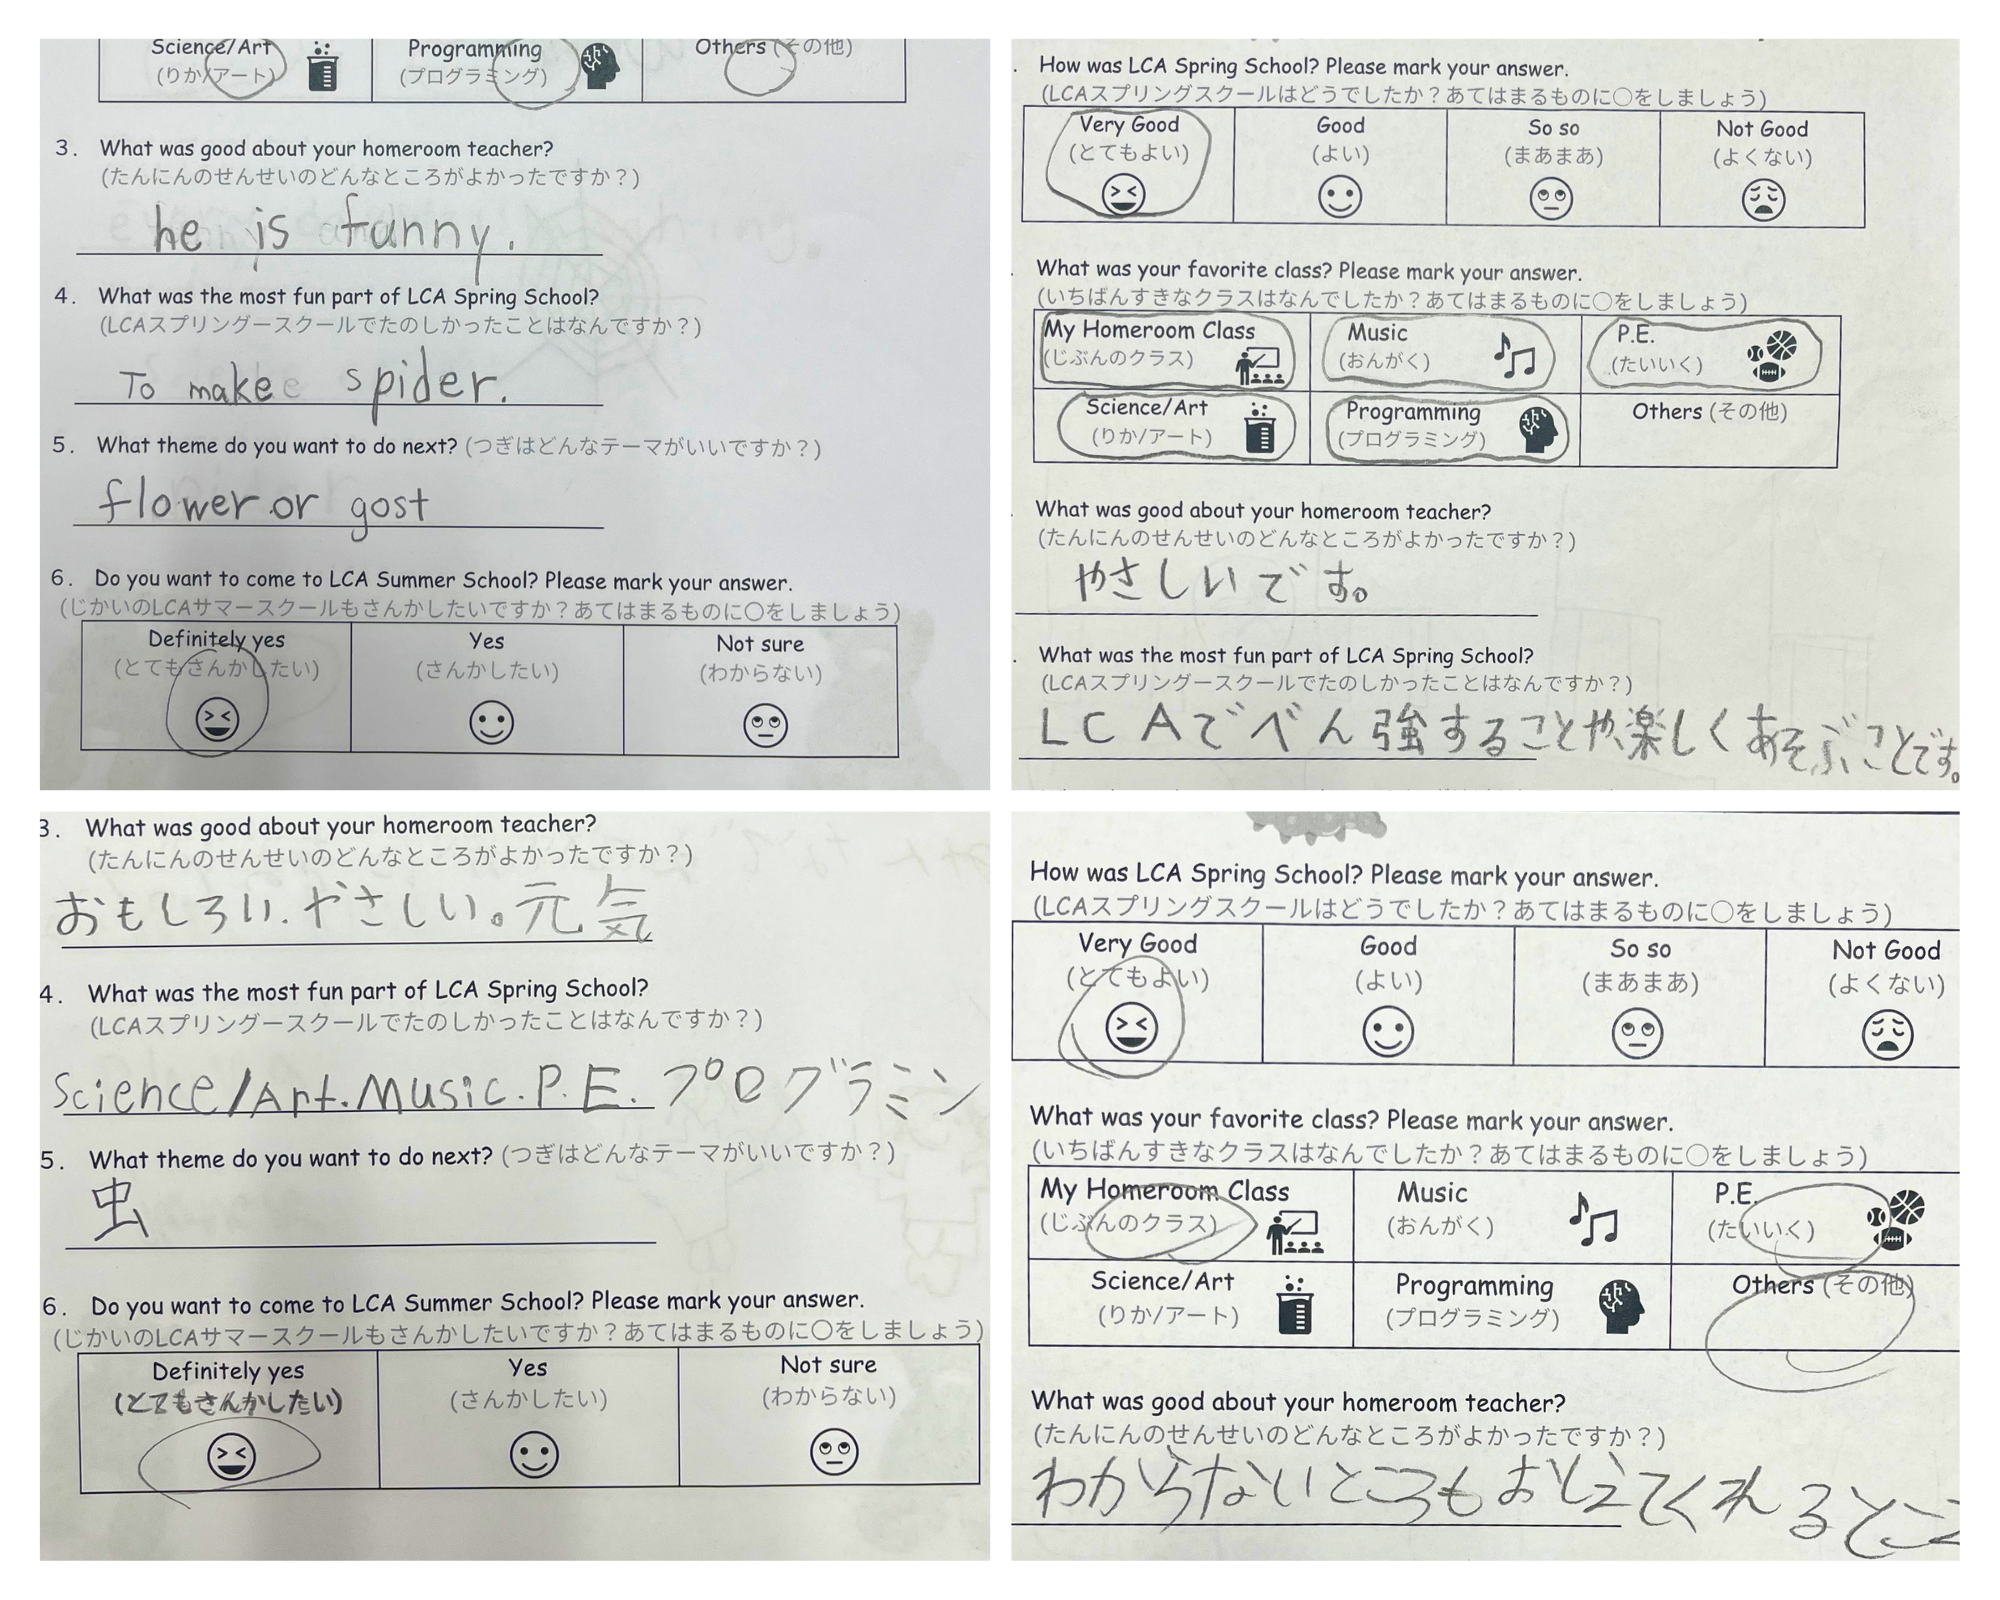 Science/Art
(りか/アート)
Programming
(プログラミング)
Others (その他)
3. What was good about your homeroom teacher?
(たんにんのせんせいのどんなところがよかったですか？)
he is funny.
4. What was the most fun part of LCA Spring School?
(LCAスプリングースクールでたのしかったことはなんですか？)
To make spider.
5. What theme do you want to do next? (つぎはどんなテーマがいいですか？)
flower or gost
6. Do you want to come to LCA Summer School? Please mark your answer.
(じかいのLCAサマースクールもさんかしたいですか？あてはまるものに○をしましょう)
Definitely yes
(とてもさんかしたい)
Yes
(さんかしたい)
Not sure
(わからない)
How was LCA Spring School? Please mark your answer.
(LCAスプリングスクールはどうでしたか？あてはまるものに○をしましょう)
Very Good
(とてもよい)
Good
(よい)
So so
(まあまあ)
Not Good
(よくない)
What was your favorite class? Please mark your answer.
(いちばんすきなクラスはなんでしたか？あてはまるものに○をしましょう)
My Homeroom Class
(じぶんのクラス)
Music
(おんがく)
P.E.
(たいいく)
Science/Art
(りか/アート)
Programming
(プログラミング)
Others (その他)
What was good about your homeroom teacher?
(たんにんのせんせいのどんなところがよかったですか？)
やさしいです。
What was the most fun part of LCA Spring School?
(LCAスプリングースクールでたのしかったことはなんですか？)
LCAでべん強することや楽しくあそぶことです。
3. What was good about your homeroom teacher?
(たんにんのせんせいのどんなところがよかったですか？)
おもしろい.やさしい。元気
4. What was the most fun part of LCA Spring School?
(LCAスプリングースクールでたのしかったことはなんですか？)
Science/Art.Music.P.E.プログラミン
5. What theme do you want to do next? (つぎはどんなテーマがいいですか？)
虫
6. Do you want to come to LCA Summer School? Please mark your answer.
(じかいのLCAサマースクールもさんかしたいですか？あてはまるものに○をしましょう)
Definitely yes
(とてもさんかしたい)
Yes
(さんかしたい)
Not sure
(わからない)
How was LCA Spring School? Please mark your answer.
(LCAスプリングスクールはどうでしたか？あてはまるものに○をしましょう)
Very Good
(とてもよい)
Good
(よい)
So so
(まあまあ)
Not Good
(よくない)
What was your favorite class? Please mark your answer.
(いちばんすきなクラスはなんでしたか？あてはまるものに○をしましょう)
My Homeroom Class
(じぶんのクラス)
Music
(おんがく)
P.E.
(たいいく)
Science/Art
(りか/アート)
Programming
(プログラミング)
Others (その他)
What was good about your homeroom teacher?
(たんにんのせんせいのどんなところがよかったですか？)
わからないところもおしえてくれるとこ